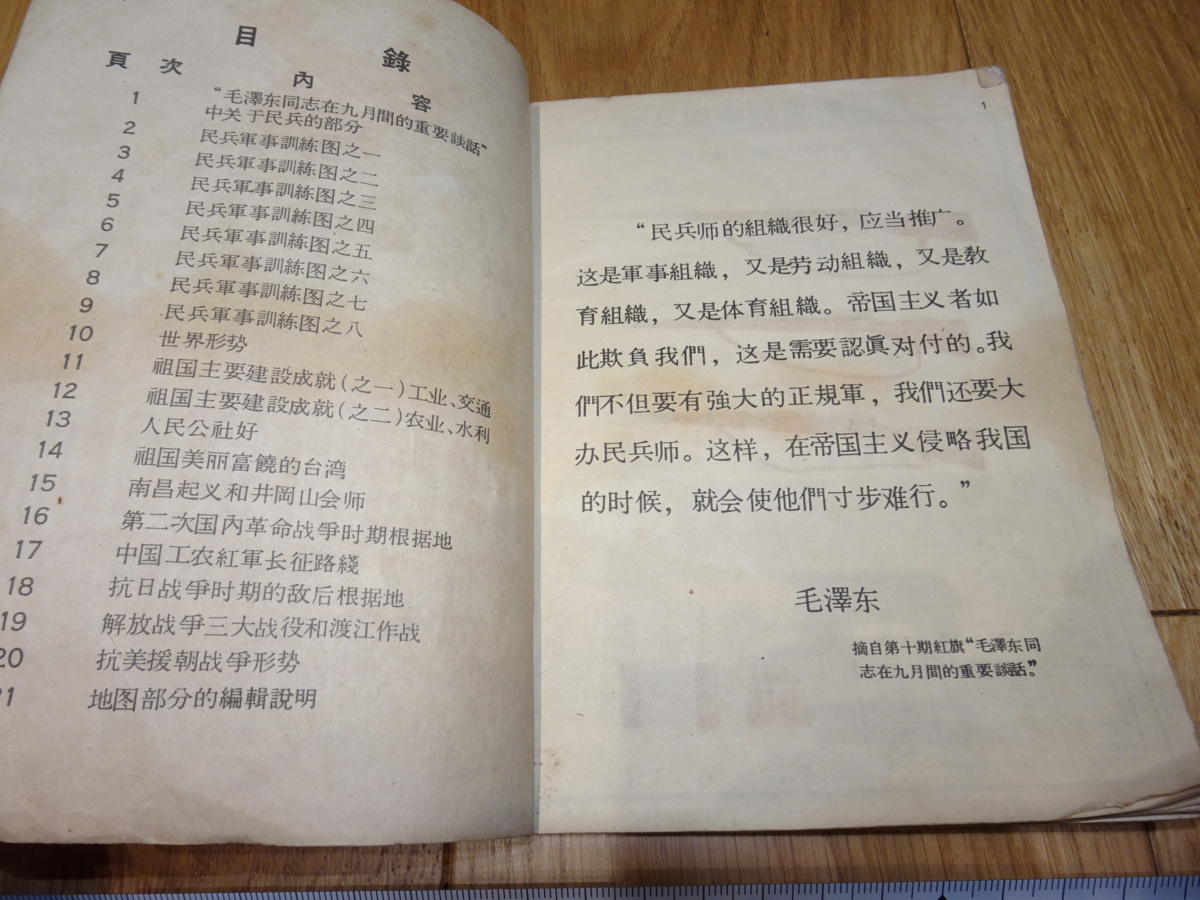 目 錄
頁次 內容
1 “毛澤东同志在九月間的重要談話”
中关于民兵的部分
2 民兵軍事訓練图之一
3 民兵軍事訓練图之二
4 民兵軍事訓練图之三
5 民兵軍事訓練图之四
6 民兵軍事訓練图之五
7 民兵軍事訓練图之六
8 民兵軍事訓練图之七
9 民兵軍事訓練图之八
10 世界形势
11 祖国主要建設成就(之一)工业、交通
12 祖国主要建設成就(之二)农业、水利
13 人民公社好
14 祖国美丽富饒的台湾
15 南昌起义和井岡山会师
16 第二次国內革命战爭时期根据地
17 中国工农紅軍长征路綫
18 抗日战爭时期的敌后根据地
19 解放战爭三大战役和渡江作战
20 抗美援朝战爭形势
21 地图部分的編輯說明
1
“民兵师的組織很好，应当推广。
这是軍事組織，又是劳动組織，又是敎
育組織，又是体育組織。帝国主义者如
此欺負我們，这是需要認眞对付的。我
們不但要有強大的正規軍，我們还要大
办民兵师。这样，在帝国主义侵略我国
的时候，就会使他們寸步难行。”
毛澤东
摘自第十期紅旗“毛澤东同
志在九月間的重要談話”。